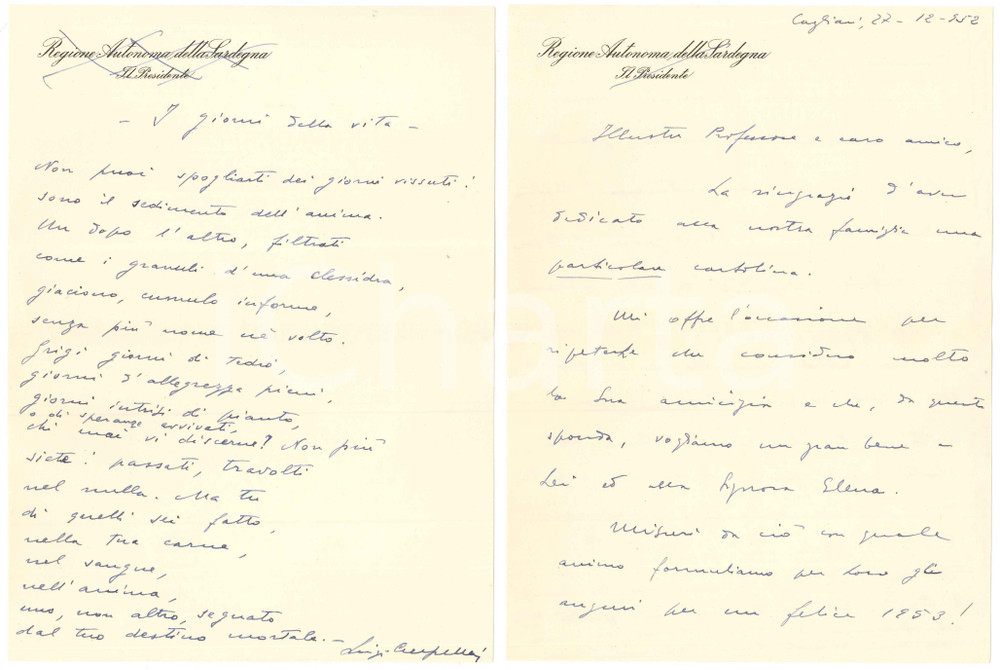 Regione Autonoma della Sardegna
Il Presidente
- I giorni della vita -
Non puoi spogliarti dei giorni vissuti!
sono il sedimento dell'anima.
Un dopo l'altro, filtrati
come i granuli d'una clessidra,
giacciono, cumulo informe,
senza più nome nè volto.
Grigi giorni di tedio,
giorni d'allegrezza pieni,
giorni intrisi di pianto,
o di speranze avvivati,
chi mai vi discerne? Non più
siete! passati, travolti
nel nulla. Ma tu
di quelli sei fatto,
nella tua carne,
nel sangue,
nell'anima,
uno, non altro, segnato
dal tuo destino mortale. -
Luigi Crespellani
Cagliari, 27-12-952
Regione Autonoma della Sardegna
Il Presidente
Illustre Professore e caro amico,
La ringrazio d'aver
dedicato alla nostra famiglia una
particolare cartolina.
Mi offre l'occasione per
ripeterLe che considero molto
la Sua amicizia e che, da questa
sponda, vogliamo un gran bene a
Lei ed alla Signora Elena.
Misuri da ciò con quale
animo formuliamo per Loro gli
auguri per un felice 1953!